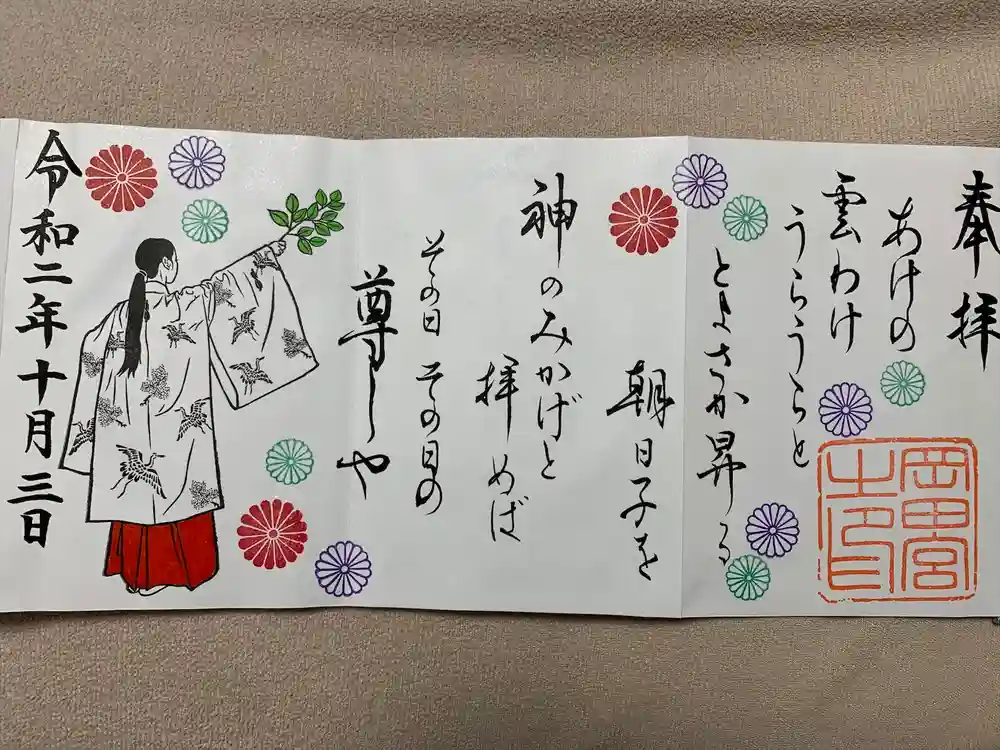 奉拝
あけの
雲わけ
うらうらと
とよさか昇る
朝日子を
神のみかげと
拝めば
その日その日の
尊しや
令和二年十月三日
岡田宮
之印